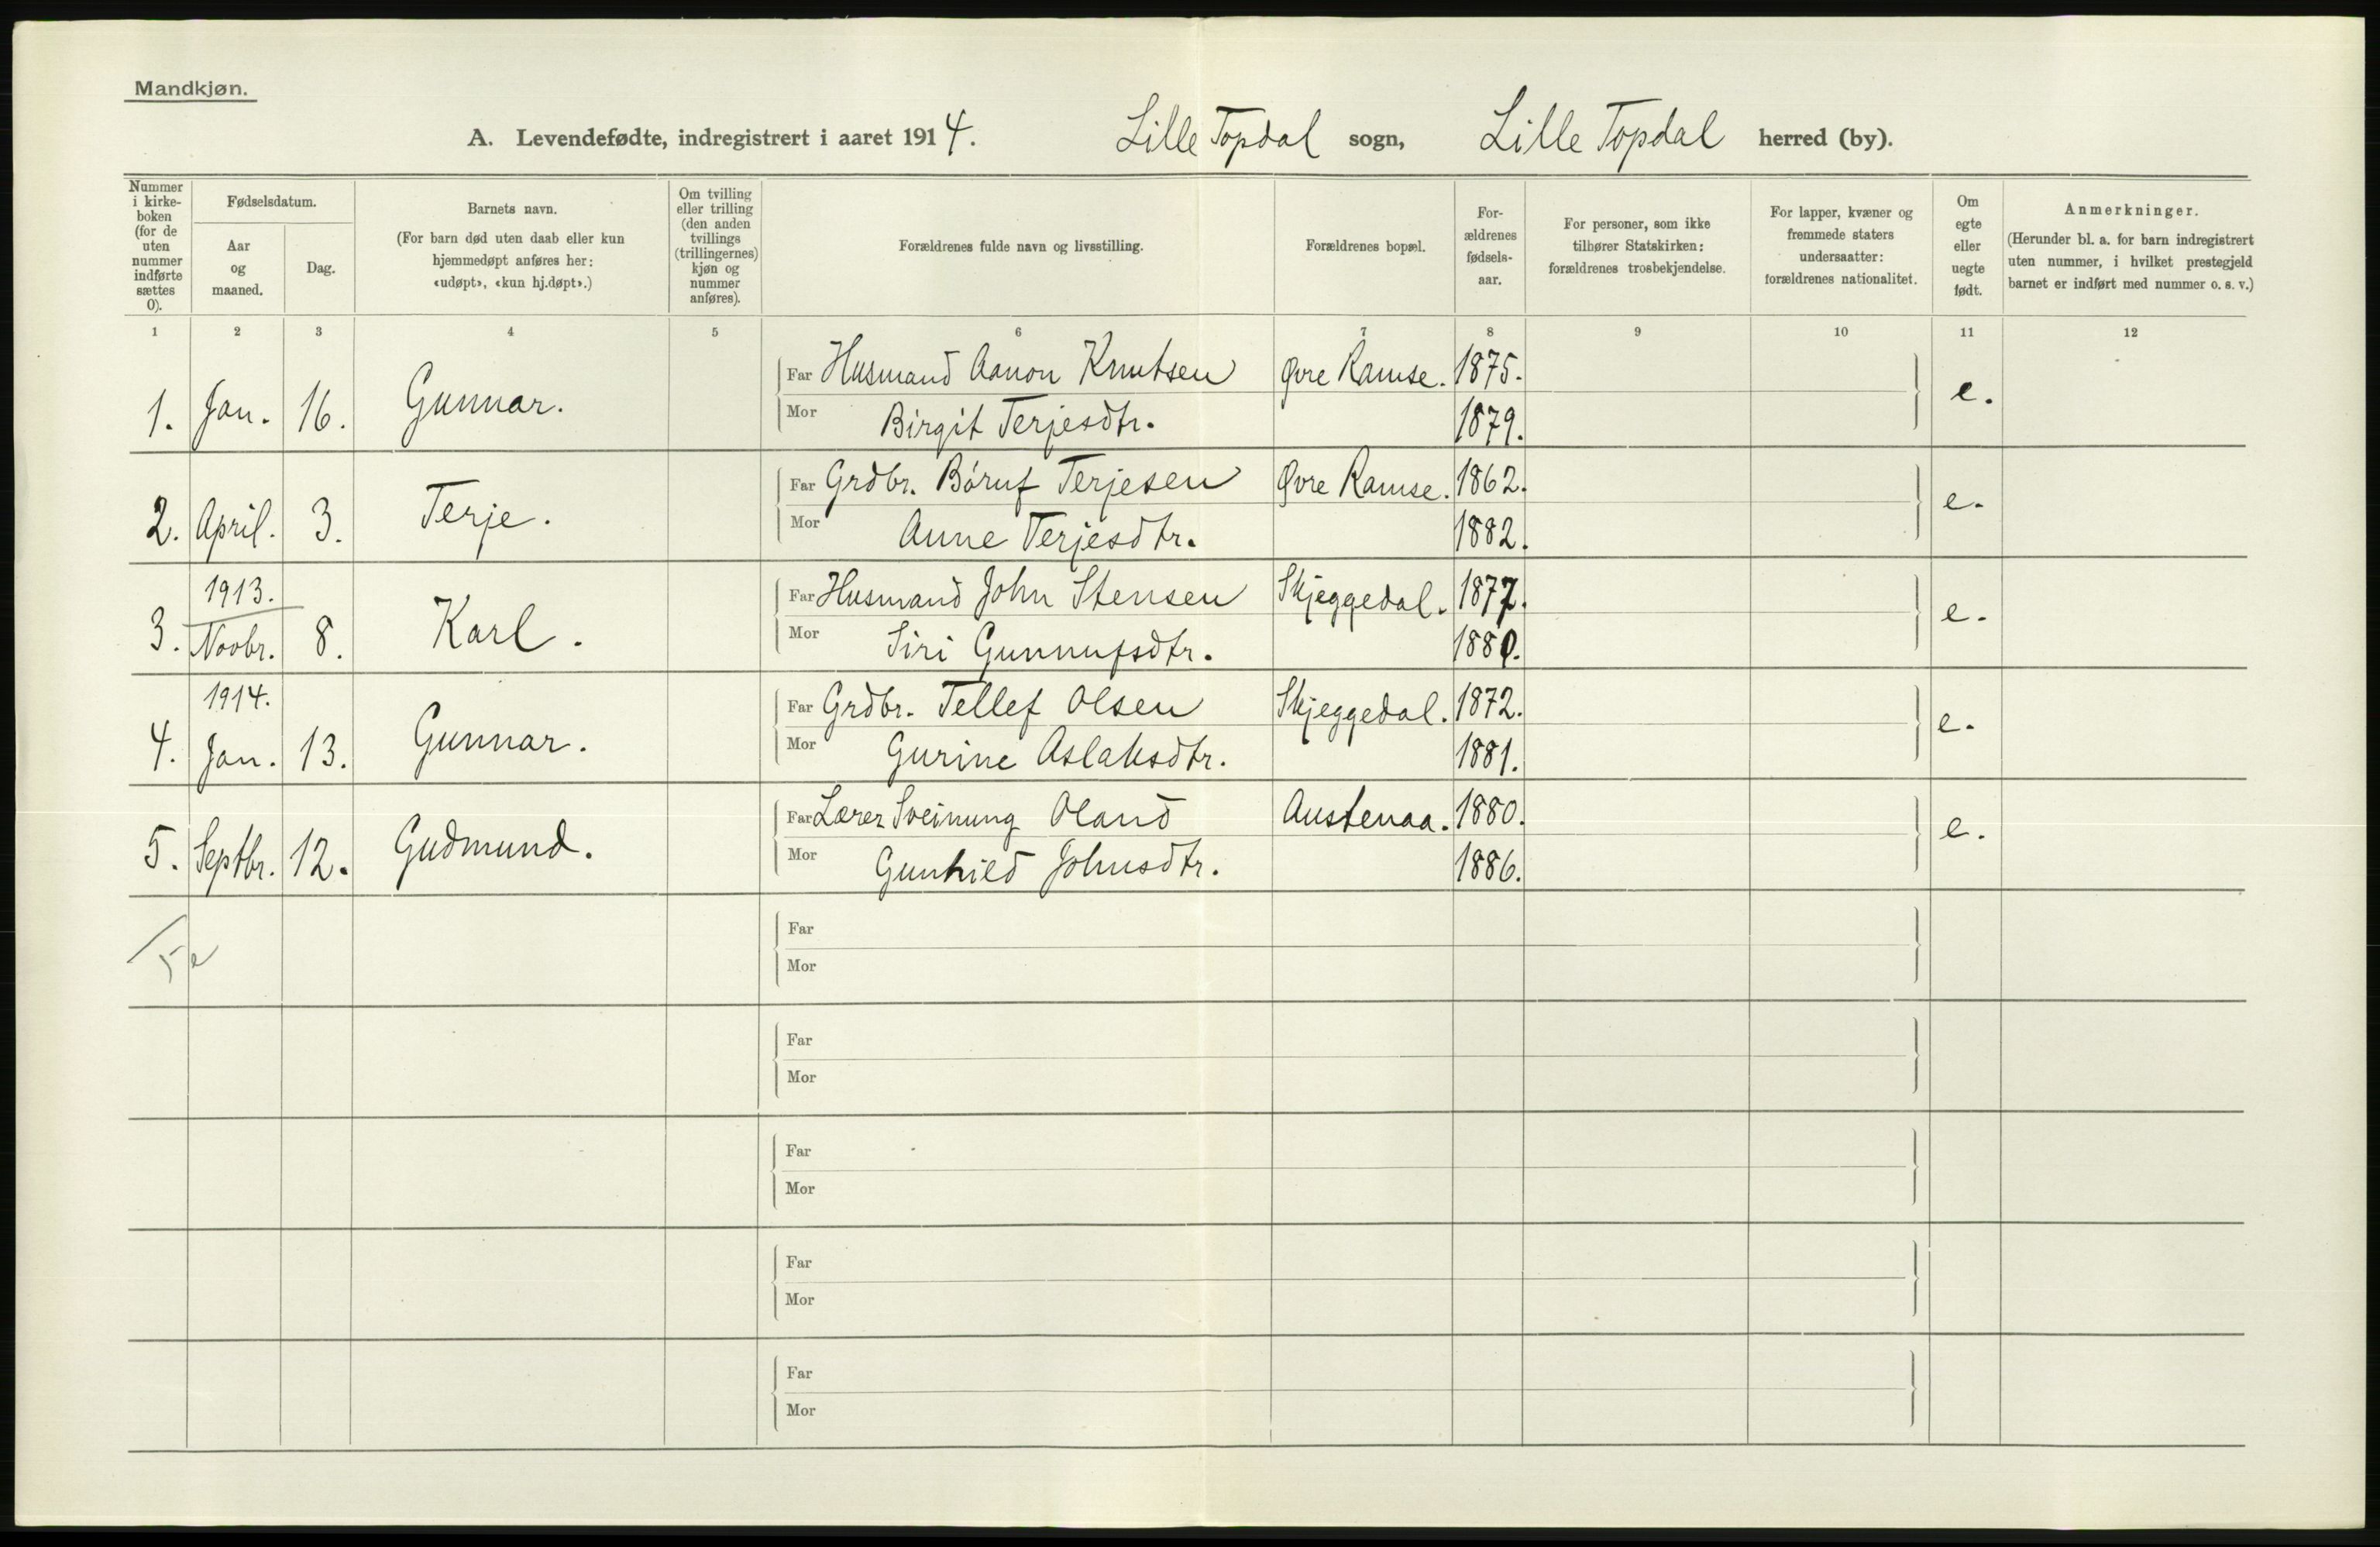 Mandkjøn.
A. Levendefødte, indregistrert i aaret 1914. Lille Topdal sogn, Lille Topdal herred (by).
Nummer i kirke-boken (for de uten nummer indførte sættes 0).
Fødselsdatum.
Aar og maaned.
Dag.
Barnets navn.
(For barn død uten daab eller kun hjemmedøpt anføres her: «udøpt», «kun hj.døpt».)
Om tvilling eller trilling (den anden tvillings (trillingernes) kjøn og nummer anføres).
Forældrenes fulde navn og livsstilling.
Forældrenes bopæl.
For-ældrenes fødsels-aar.
For personer, som ikke tilhører Statskirken: forældrenes trosbekjendelse.
For lapper, kvæner og fremmede staters undersaatter: forældrenes nationalitet.
Om egte eller uegte født.
Anmerkninger.
(Herunder bl. a. for barn indregistrert uten nummer, i hvilket prestegjeld barnet er indført med nummer o. s. v.)
1 2 3 4 5 6 7 8 9 10 11 12
1. Jan. 16. Gunnar. Far Husmand Aanon Knutsen Øvre Ramse. 1875. e.
Mor Birgit Terjesdtr. 1879.
2. April. 3. Terje. Far Grdbr. Bóruf Terjesen Øvre Ramse. 1862. e.
Mor Anne Terjesdtr. 1882.
1913.
3. Novbr. 8. Karl. Far Husmand John Stensen Skjeggedal. 1877. e.
Mor Siri Gunnufsdtr. 1880.
1914.
4. Jan. 13. Gunnar. Far Grdbr. Tellef Olsen Skjeggedal. 1872. e.
Mor Gurine Aslaksdtr. 1881.
5. Septbr. 12. Gudmund. Far Lærer Sveinung Oland Austenaa. 1880. e.
Mor Gunhild Johnsdtr. 1886.
5 e
Far
Mor
Far
Mor
Far
Mor
Far
Mor
Far
Mor